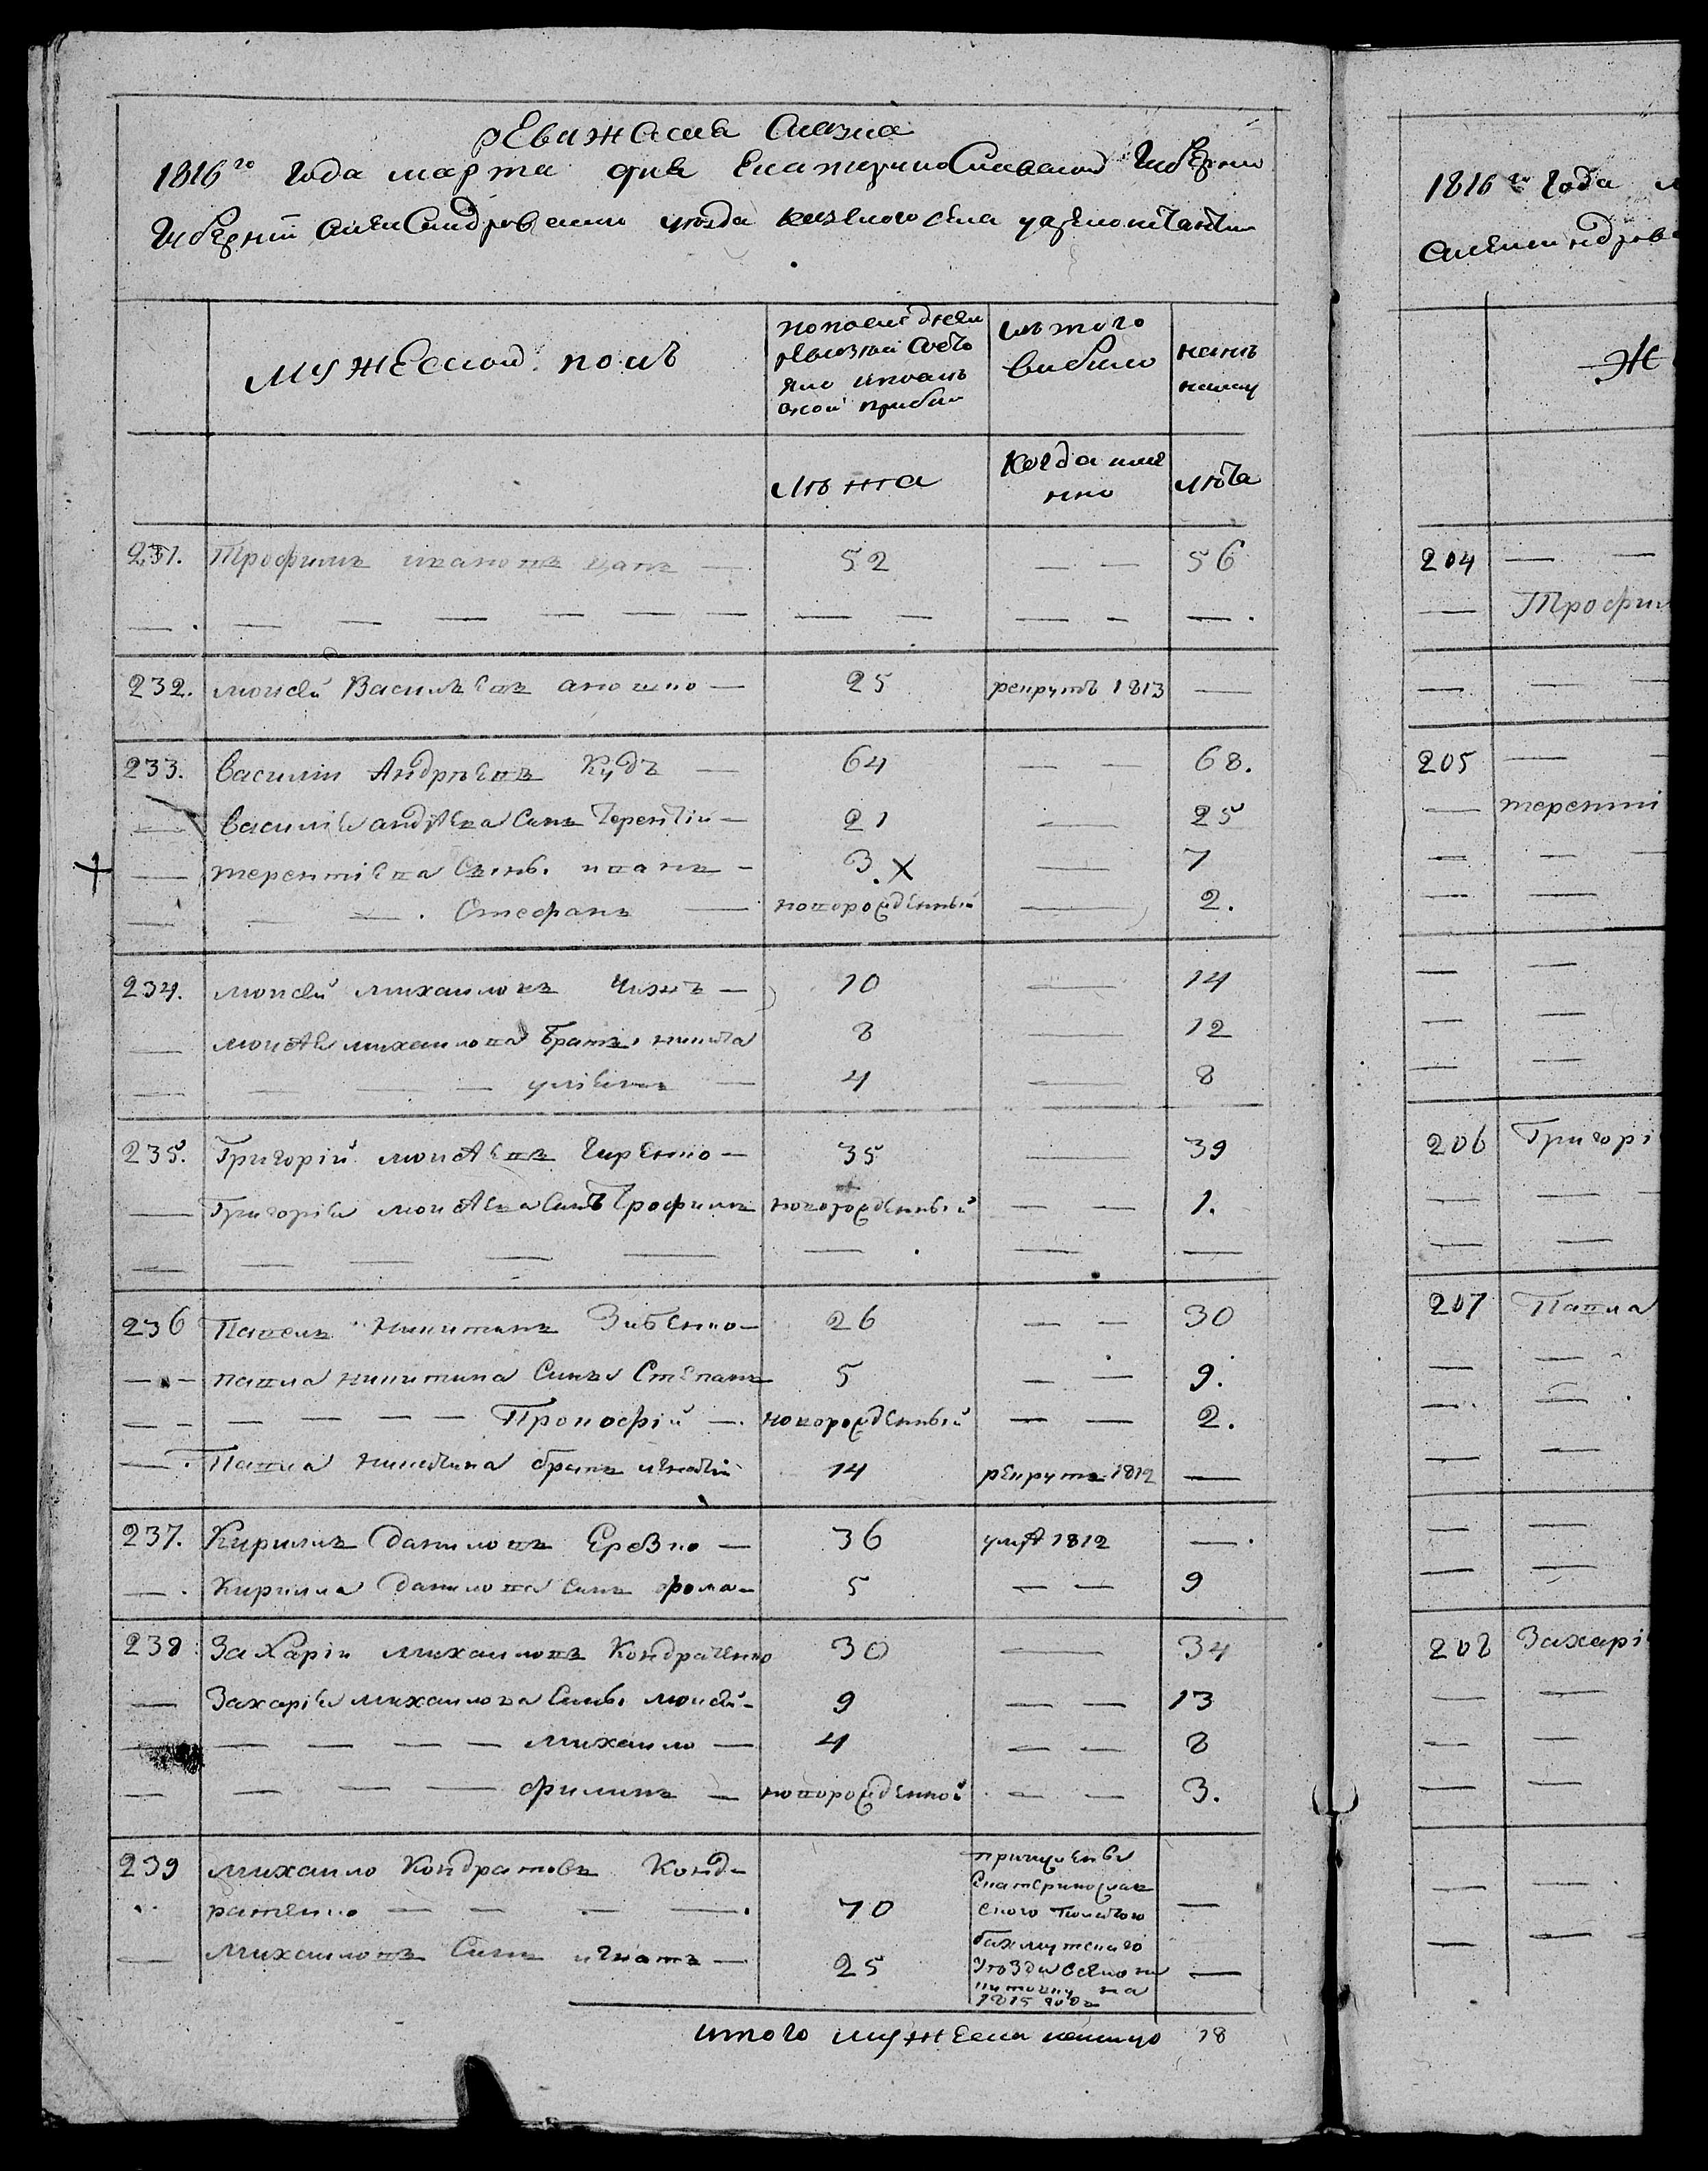 рЕвижская Сказка
1816го года марта дня Екатеринославской Губернии
Губернии Александровскаго уезда казенного села
мужеской полъ
по последней ревизии состояло и после оной прибыло
изъ того выбыло
ныне на лицо
лѣта
Когда именно
лѣта
231. Трофимъ Ивановъ Цапъ — 52 — — 56
232. моисей Васильевъ — 25 рекрутъ 1813 —
233. василий Андрѣевъ Кудъ — 64 — — 68.
— василия андрѣева Синъ Терентий — 21 — 25
— терентиева Синъ. иванъ — 3. х — 7
— — — . Стефанъ — новорожденный — 2.
234. моисей михайловъ Чижъ — 10 — 14
— моисѣя михайлова братъ, никита 8 — 12
— — — — — 4 — 8
235. Григорий моисѣевъ Гиренко — 35 — 39
— Григория моисѣева Синъ Трофимъ новорожденный — — 1.
236 Павелъ Никитинъ Зибенко — 26 — — 30
— — павла никитина Синъ Степанъ 5 — — 9.
— — — — — — Прокофий — новорожденный — — 2.
— . Павла Никитина братъ 14 рекрутъ 1812 —
237. Кирилъ Даниловъ — 36 умре 1812 — .
— . Кирила Данилова синъ — 5 — — 9
238 Захарий михайловъ Кондраченко 30 — 34
— Захария михайлова Синъ. моисей — 9 — — 13
— — — — — михайло — 4 — — 8
— — — — филипъ — новорожденной — — 3.
239 михайло Кондратовъ Конд-
ратенко — — — — 70 —
— Михайловъ Синъ игнатъ — 25 —
причисленъ
Екатеринославского
бахмутскаго
уезда
1815 года
итого мужеска налицо 18
1816го года
александров
Ж
204 — —
— Трофим
— — —
205 — —
— терентий
206 Григорі
207 Павла
208 Захарі